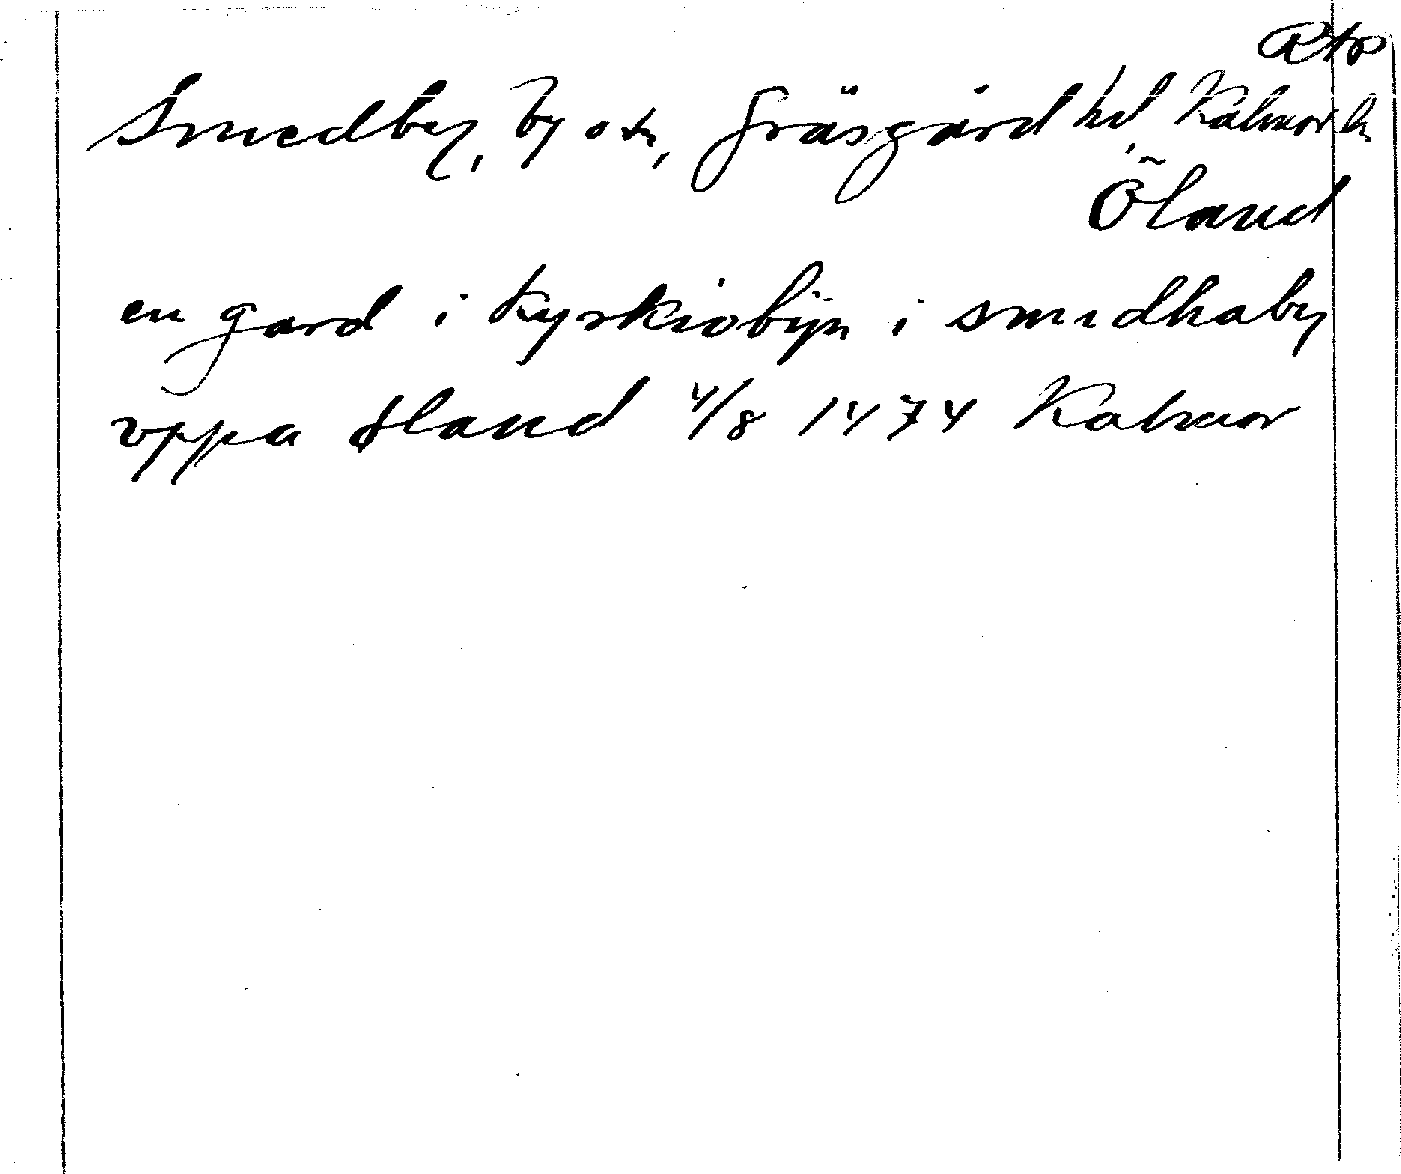 Rtp
Smedby, by o sn, Gräsgård hd, Kalmar l.
Öland
en gard i kyrkiobijn i smidhaby
vppa øland 4/8 1474 Kalmar